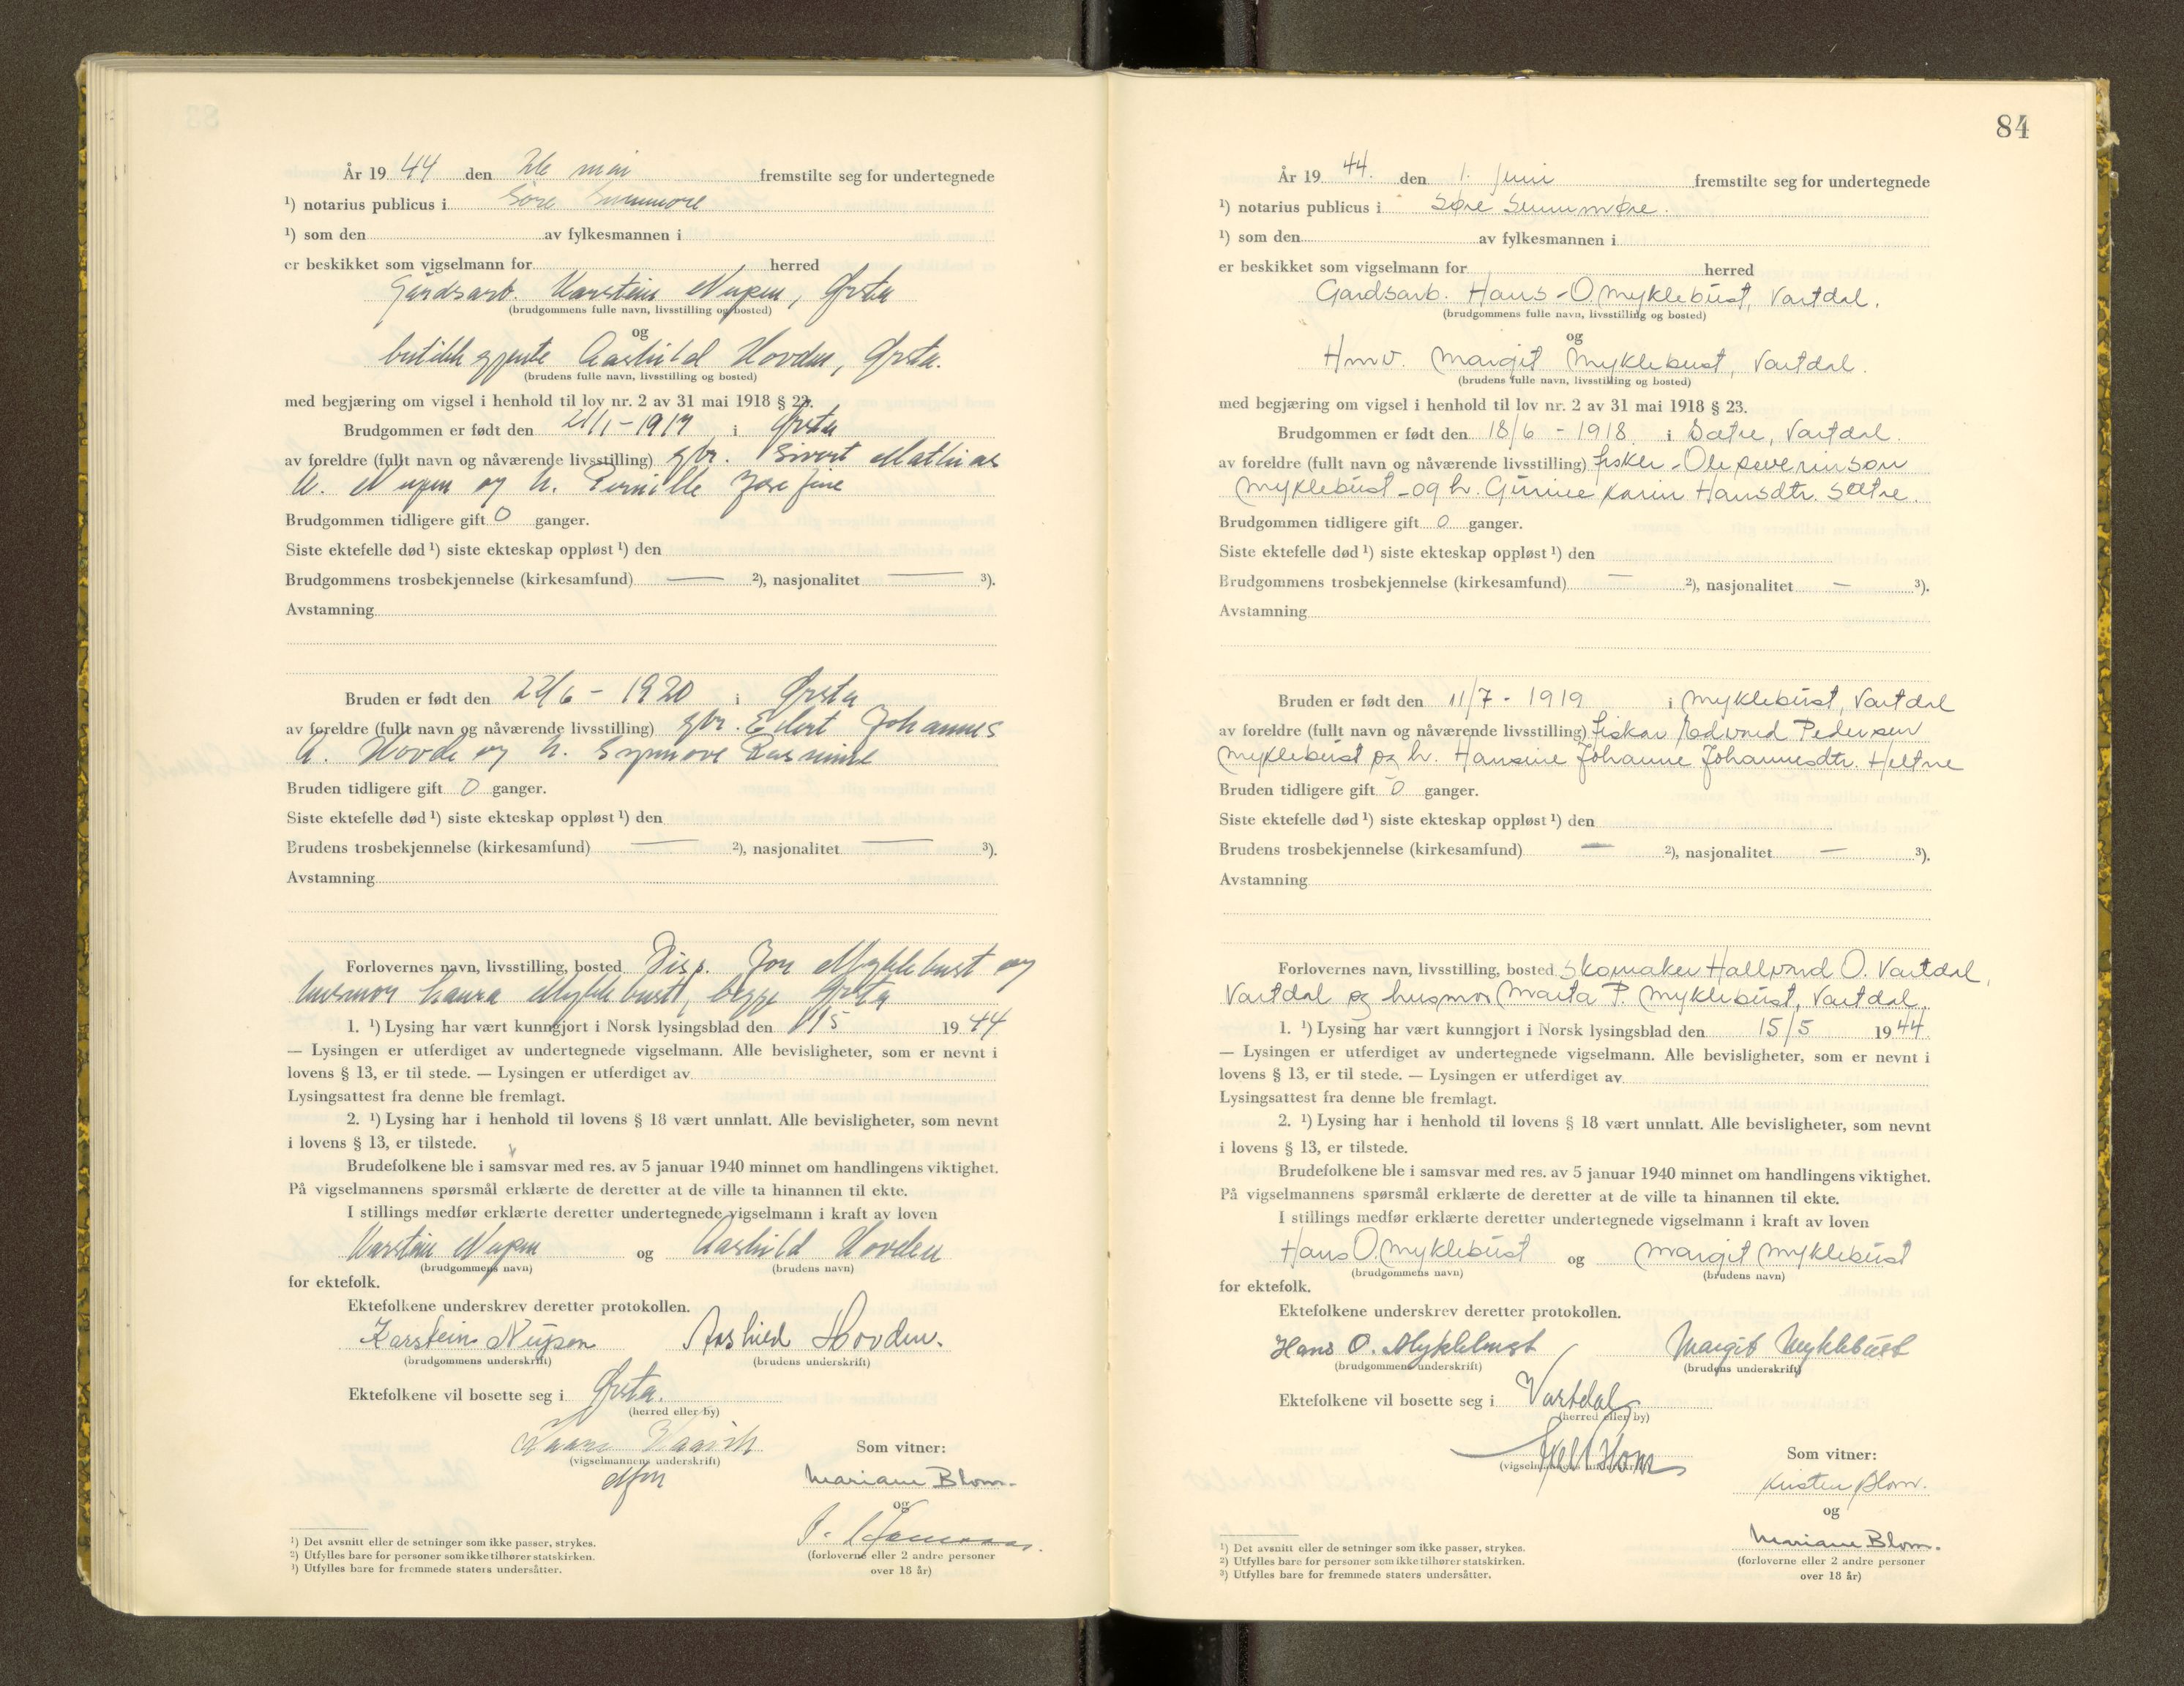 År 19 44 den mai fremstilte seg for undertegnede
¹) notarius publicus i Søre Sunnmøre
¹) som den av fylkesmannen i
er beskikket som vigselmann for herred
Gårdsarb. Karstein Nupen, Ørsta
(brudgommens fulle navn, livsstilling og bosted)
og
butikkgjente Aashild Hovden, Ørsta.
(brudens fulle navn, livsstilling og bosted)
med begjæring om vigsel i henhold til lov nr. 2 av 31 mai 1918 § 23.
Brudgommen er født den 21/1 - 1917 i Ørsta
av foreldre (fullt navn og nåværende livsstilling) gbr. Sivert Mathias
A. Nupen og h. Pernille Josefine
Brudgommen tidligere gift 0 ganger.
Siste ektefelle død ¹) siste ekteskap oppløst ¹) den
Brudgommens trosbekjennelse (kirkesamfund) — ²), nasjonalitet — ³).
Avstamning
Bruden er født den 22/6 - 1920 i Ørsta
av foreldre (fullt navn og nåværende livsstilling) gbr. Edert Johannes
A. Hovde og h. Synnøve Rasmine
Bruden tidligere gift 0 ganger.
Siste ektefelle død ¹) siste ekteskap oppløst ¹) den
Brudens trosbekjennelse (kirkesamfund) — ²), nasjonalitet — ³).
Avstamning
Forlovernes navn, livsstilling, bosted Disp. Jon Myklebust og
husmor Laura Myklebust, begge Ørsta
1. ¹) Lysing har vært kunngjort i Norsk lysingsblad den 1/5 1944
— Lysingen er utferdiget av undertegnede vigselmann. Alle bevisligheter, som er nevnt i
lovens § 13, er til stede. — Lysingen er utferdiget av
Lysingsattest fra denne ble fremlagt.
2. ¹) Lysing har i henhold til lovens § 18 vært unnlatt. Alle bevisligheter, som nevnt
i lovens § 13, er tilstede.
Brudefolkene ble i samsvar med res. av 5 januar 1940 minnet om handlingens viktighet.
På vigselmannens spørsmål erklærte de deretter at de ville ta hinannen til ekte.
I stillings medfør erklærte deretter undertegnede vigselmann i kraft av loven
Karstein Nupen og Aashild Hovden
(brudgommens navn) (brudens navn)
for ektefolk.
Ektefolkene underskrev deretter protokollen.
Karstein Nupen Aashild Hovden.
(brudgommens underskrift) (brudens underskrift)
Ektefolkene vil bosette seg i Ørsta.
(herred eller by)
Som vitner:
(vigselmannens underskrift)
Mariane Blom.
og
(forloverne eller 2 andre personer
over 18 år)
¹) Det avsnitt eller de setninger som ikke passer, strykes.
²) Utfylles bare for personer som ikke tilhører statskirken.
³) Utfylles bare for fremmede staters undersåtter.
84
År 19 44. den 1. juni fremstilte seg for undertegnede
¹) notarius publicus i Søre Sunnmøre.
¹) som den av fylkesmannen i
er beskikket som vigselmann for herred
Gardsarb. Hans O Myklebust, Vartdal.
(brudgommens fulle navn, livsstilling og bosted)
og
Hmv. Margit Myklebust, Vartdal.
(brudens fulle navn, livsstilling og bosted)
med begjæring om vigsel i henhold til lov nr. 2 av 31 mai 1918 § 23.
Brudgommen er født den 18/6 - 1918 i Sætre, Vartdal.
av foreldre (fullt navn og nåværende livsstilling) fisker - Ole Severinson
Myklebust - og h. Gurine Karin Hansdtr. Sætre.
Brudgommen tidligere gift 0 ganger.
Siste ektefelle død ¹) siste ekteskap oppløst ¹) den
Brudgommens trosbekjennelse (kirkesamfund) — ²), nasjonalitet — ³).
Avstamning
Bruden er født den 11/7 - 1919 i Myklebust, Vartdal
av foreldre (fullt navn og nåværende livsstilling) fiskar Edvard Pedersen
Myklebust og h. Hansine Johanne Johannesdtr. Heltne
Bruden tidligere gift 0 ganger.
Siste ektefelle død ¹) siste ekteskap oppløst ¹) den
Brudens trosbekjennelse (kirkesamfund) — ²), nasjonalitet — ³).
Avstamning
Forlovernes navn, livsstilling, bosted Skomaker Hallvard O. Vartdal,
Vartdal og husmor Marta P. Myklebust, Vartdal.
1. ¹) Lysing har vært kunngjort i Norsk lysingsblad den 15/5 1944.
— Lysingen er utferdiget av undertegnede vigselmann. Alle bevisligheter, som er nevnt i
lovens § 13, er til stede. — Lysingen er utferdiget av
Lysingsattest fra denne ble fremlagt.
2. ¹) Lysing har i henhold til lovens § 18 vært unnlatt. Alle bevisligheter, som nevnt
i lovens § 13, er tilstede.
Brudefolkene ble i samsvar med res. av 5 januar 1940 minnet om handlingens viktighet.
På vigselmannens spørsmål erklærte de deretter at de ville ta hinannen til ekte.
I stillings medfør erklærte deretter undertegnede vigselmann i kraft av loven
Hans O. Myklebust og Margit Myklebust
(brudgommens navn) (brudens navn)
for ektefolk.
Ektefolkene underskrev deretter protokollen.
Hans O. Myklebust Margit Myklebust
(brudgommens underskrift) (brudens underskrift)
Ektefolkene vil bosette seg i Vartdal
(herred eller by)
Som vitner:
(vigselmannens underskrift)
Kirsten Blom.
og
Mariane Blom.
(forloverne eller 2 andre personer
over 18 år)
¹) Det avsnitt eller de setninger som ikke passer, strykes.
²) Utfylles bare for personer som ikke tilhører statskirken.
³) Utfylles bare for fremmede staters undersåtter.